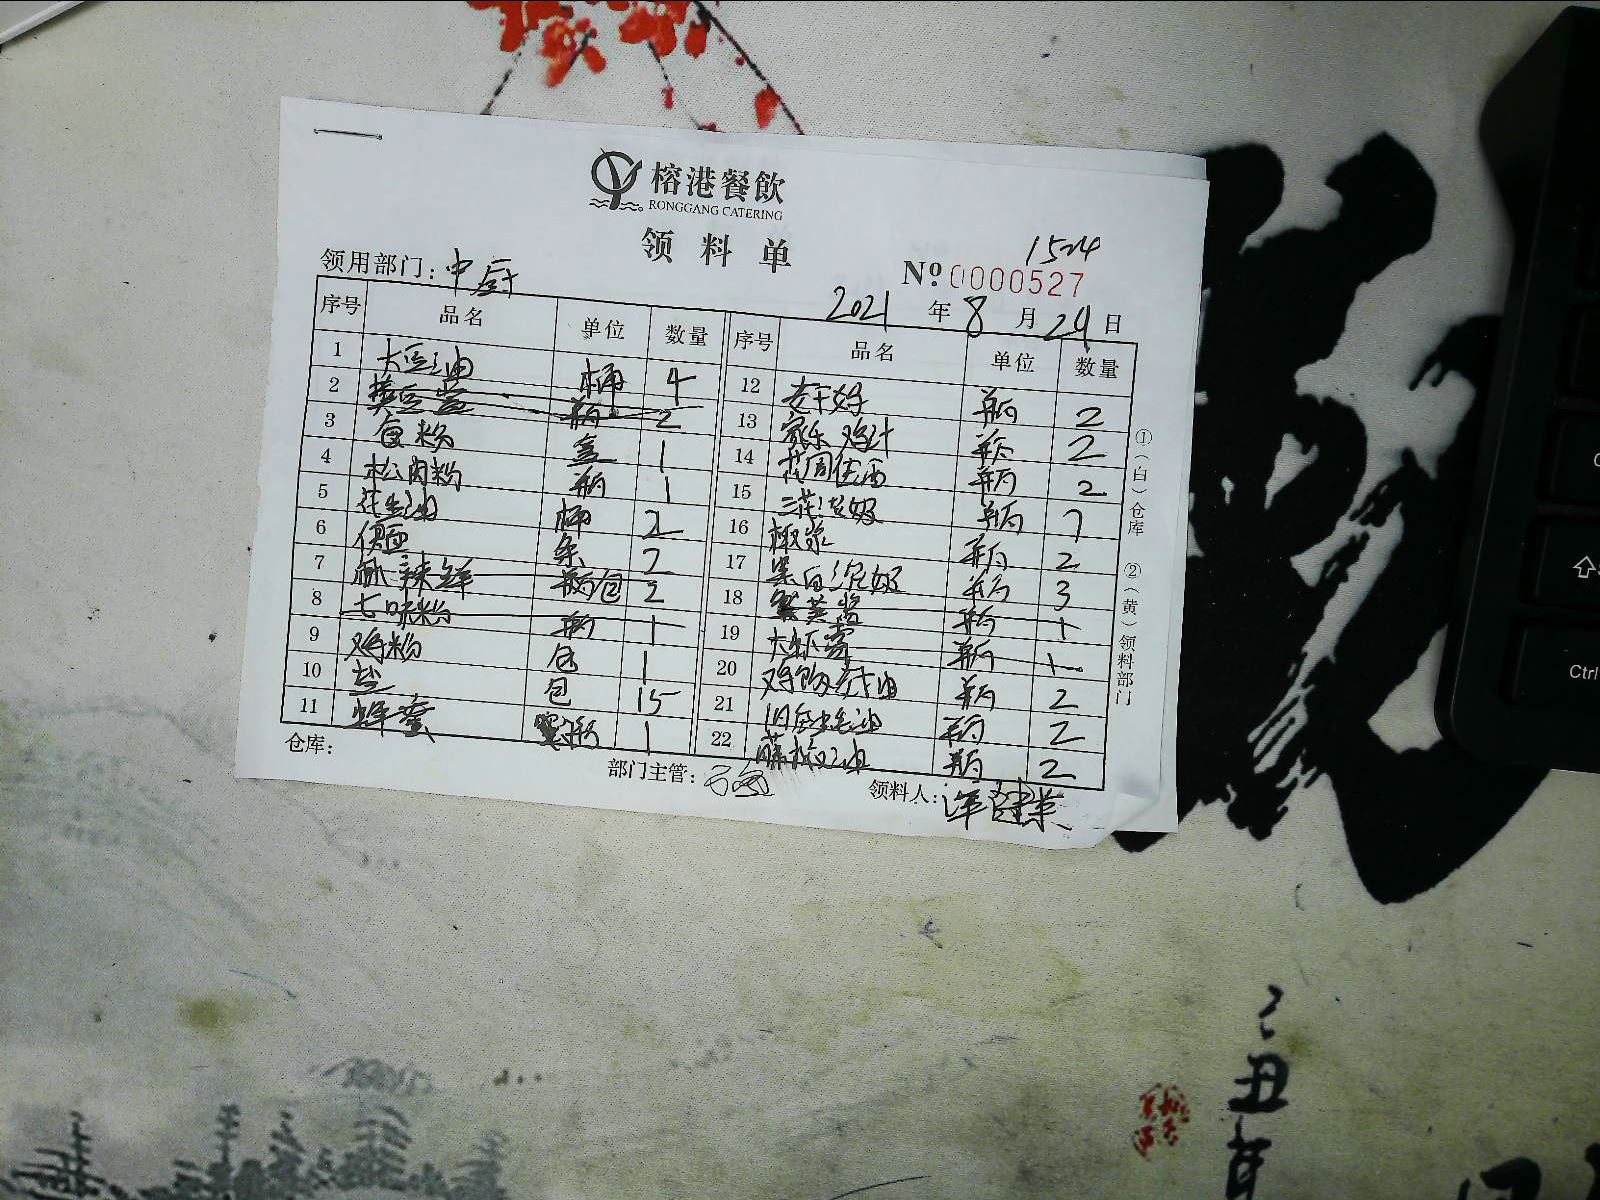 榕港餐飲
RONGGANG CATERING
领料单
1524
领用部门：中厨
№ 0000527
2021 年 8 月 24 日
序号 品名 单位 数量
1 大豆油 桶 4
2 瓶 2
3 食粉 盒 1
4 松肉粉 瓶 1
5 花生油 桶 2
6 条
7 麻辣鲜 包 2
8 七味粉 瓶 1
9 鸡粉 包 1
10 盐 包 15
11 蜂蜜 1
序号 品名 单位 数量
12 老干妈 瓶 2
13 家乐鸡汁 瓶 2
14 瓶 2
15 三花淡奶 瓶
16 椰浆 瓶 2
17 黑白淡奶 瓶 3
18 瓶 1
19 瓶 1
20 瓶 2
21 旧庄蚝油 瓶 2
22 藤椒油 瓶 2
①（白）仓库 ②（黄）领料部门
仓库：
部门主管：
领料人：
Ctrl
丑